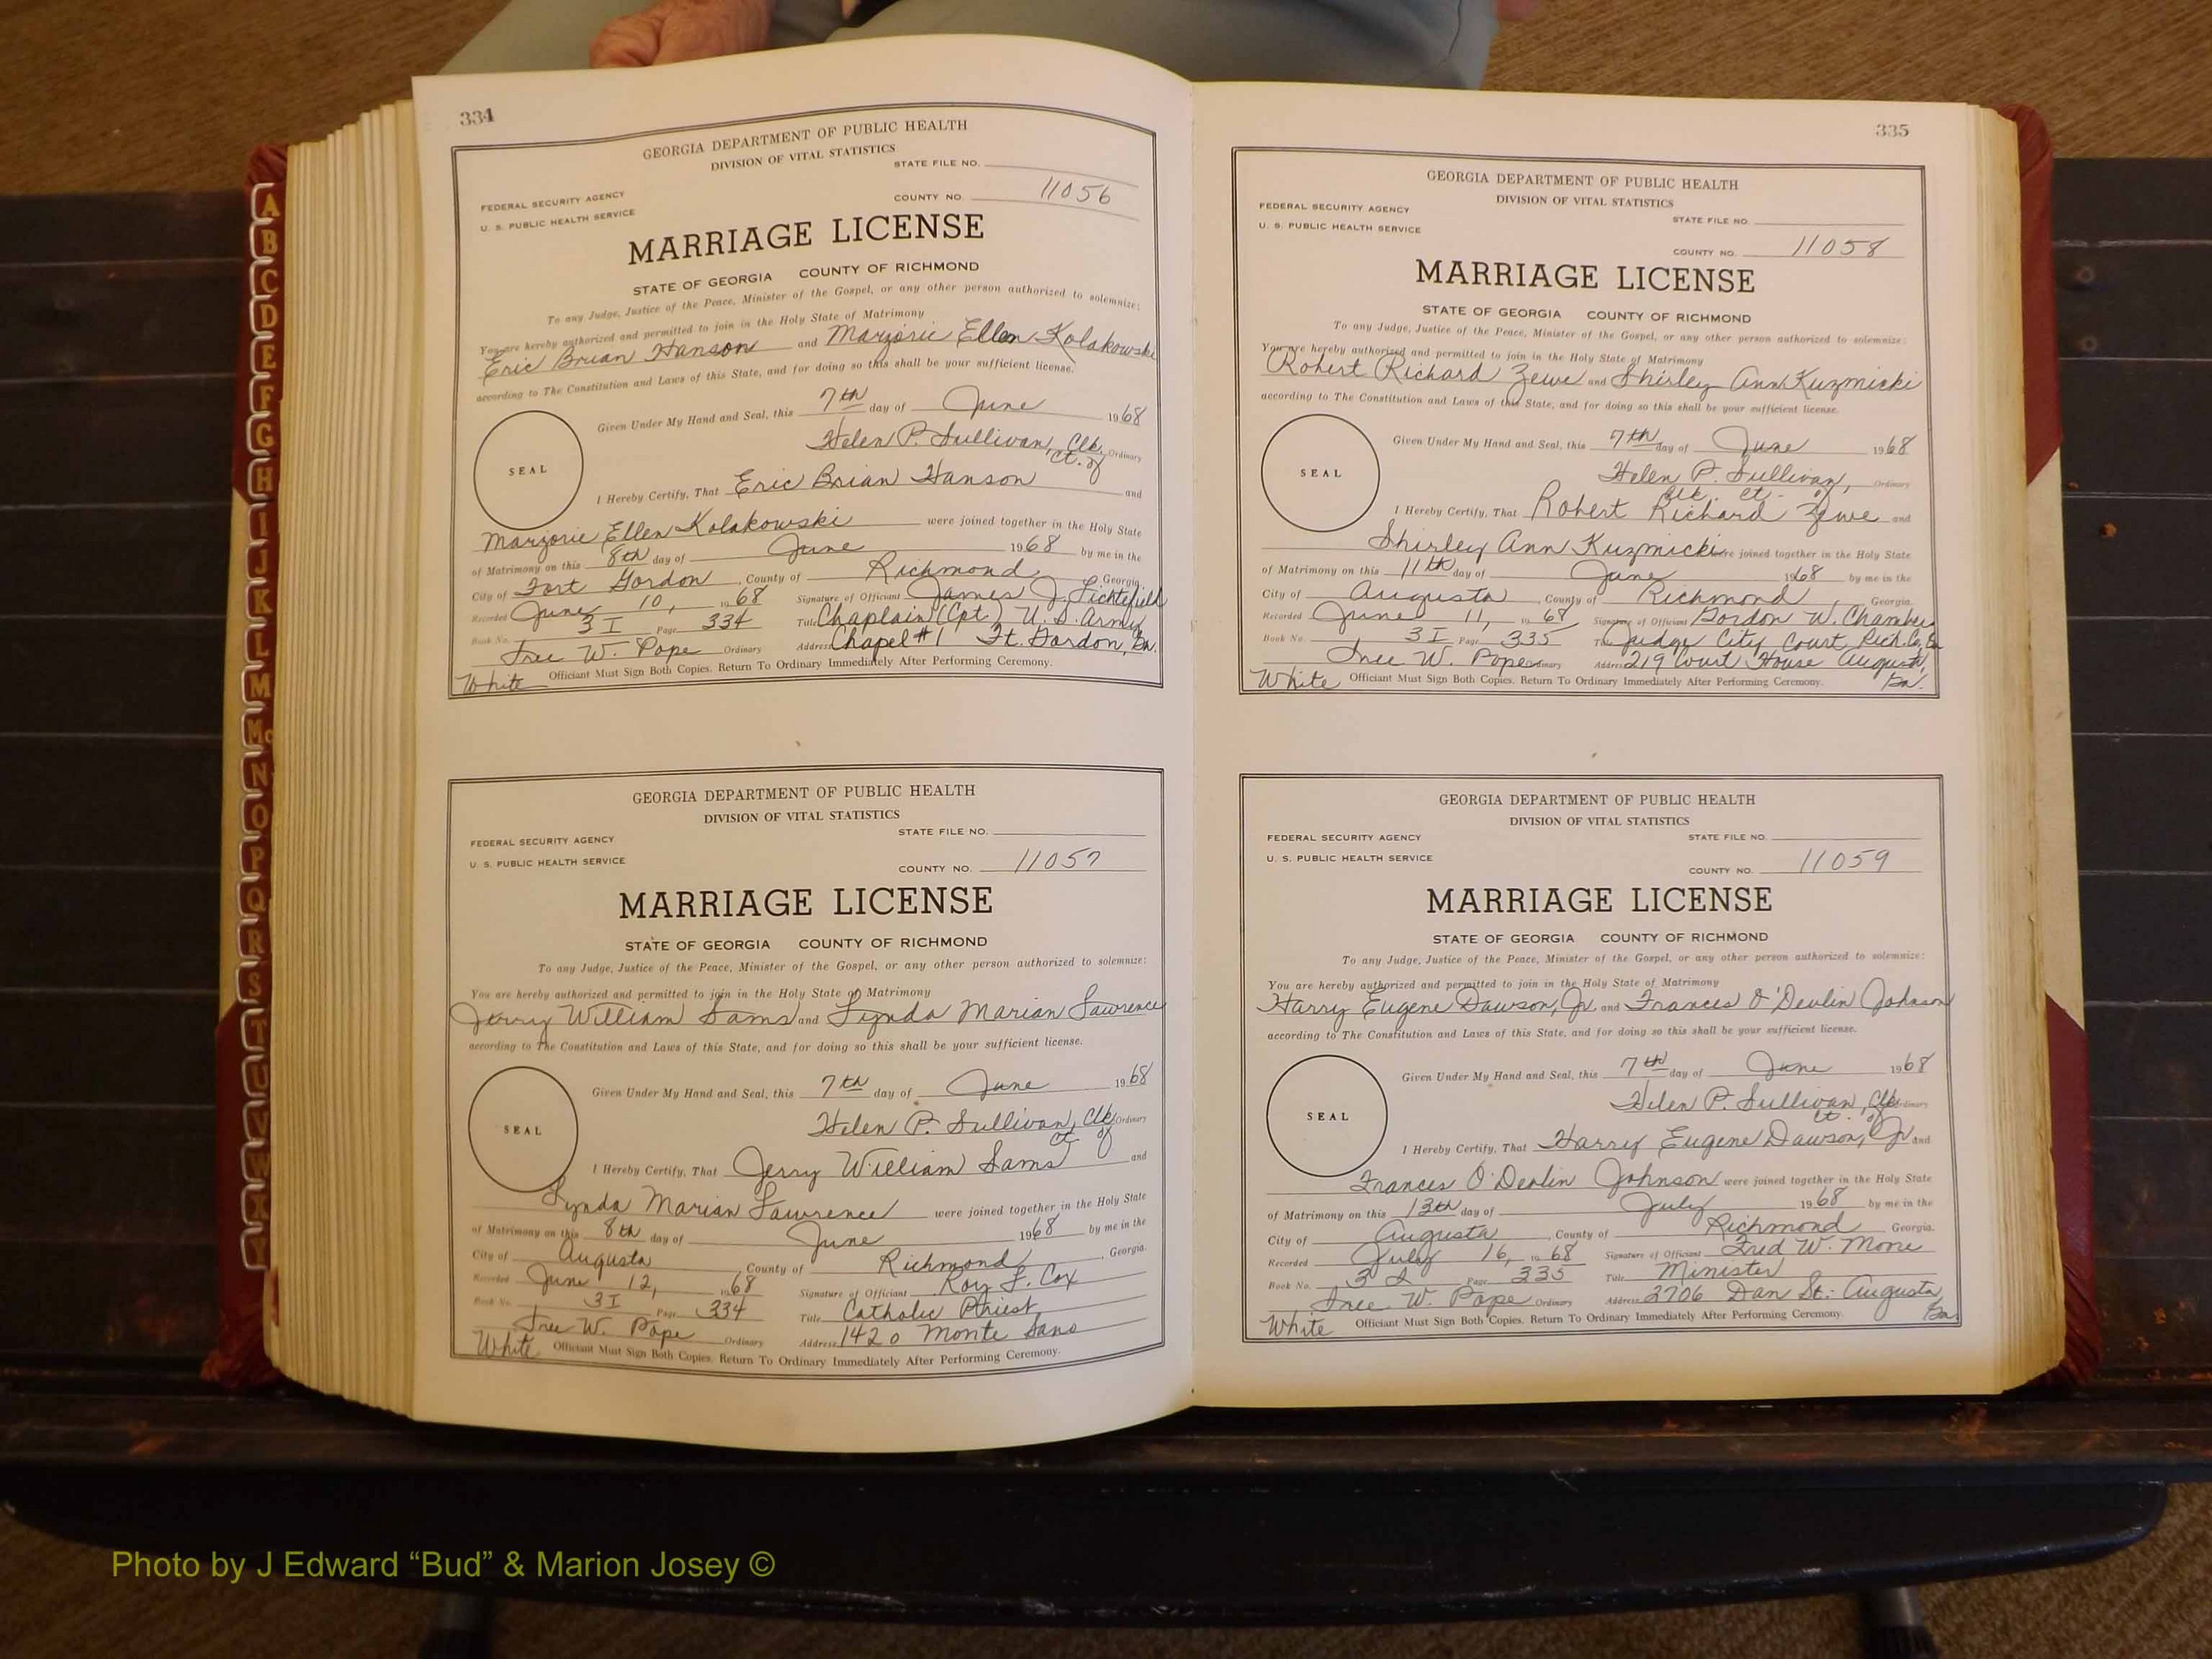 A
B
C
D
E
F
G
H
I
J
K
L
M
Mc
N
O
P
Q
R
S
T
U
V
W
X
Y
334
GEORGIA DEPARTMENT OF PUBLIC HEALTH
DIVISION OF VITAL STATISTICS
STATE FILE NO.
FEDERAL SECURITY AGENCY
U. S. PUBLIC HEALTH SERVICE
COUNTY NO. 11056
MARRIAGE LICENSE
STATE OF GEORGIA COUNTY OF RICHMOND
To any Judge, Justice of the Peace, Minister of the Gospel, or any other person authorized to solemnize:
You are hereby authorized and permitted to join in the Holy State of Matrimony
Eric Brian Hanson and Marjorie Ellen Kolakowski
according to The Constitution and Laws of this State, and for doing so this shall be your sufficient license.
Given Under My Hand and Seal, this 7th day of June 1968
Helen P. Sullivan, Clk. Ordinary
Ct. of
SEAL
I Hereby Certify, That Eric Brian Hanson and
Marjorie Ellen Kolakowski were joined together in the Holy State
of Matrimony on this 8th day of June 1968 by me in the
City of Fort Gordon, County of Richmond, Georgia
Recorded June 10, 1968 Signature of Officiant James J. Lichtefield
Book No. 3 I Page 334 Title Chaplain (Cpt.) U. S. Army
Inee W. Pope Ordinary Address Chapel #1 Ft. Gordon, Ga.
White Officiant Must Sign Both Copies. Return To Ordinary Immediately After Performing Ceremony.
GEORGIA DEPARTMENT OF PUBLIC HEALTH
DIVISION OF VITAL STATISTICS
STATE FILE NO.
FEDERAL SECURITY AGENCY
U. S. PUBLIC HEALTH SERVICE
COUNTY NO. 11057
MARRIAGE LICENSE
STATE OF GEORGIA COUNTY OF RICHMOND
To any Judge, Justice of the Peace, Minister of the Gospel, or any other person authorized to solemnize:
You are hereby authorized and permitted to join in the Holy State of Matrimony
Jerry William Sams and Lynda Marian Lawrence
according to The Constitution and Laws of this State, and for doing so this shall be your sufficient license.
Given Under My Hand and Seal, this 7th day of June 1968
Helen P. Sullivan, Clk Ordinary
Ct of
SEAL
I Hereby Certify, That Jerry William Sams and
Lynda Marian Lawrence were joined together in the Holy State
of Matrimony on this 8th day of June 1968 by me in the
City of Augusta, County of Richmond, Georgia.
Recorded June 12, 1968 Signature of Officiant Roy L. Cox
Book No. 3I Page 334 Title Catholic Priest
Inee W. Pope Ordinary Address 1420 Monte Sano
White Officiant Must Sign Both Copies. Return To Ordinary Immediately After Performing Ceremony.
335
GEORGIA DEPARTMENT OF PUBLIC HEALTH
DIVISION OF VITAL STATISTICS
FEDERAL SECURITY AGENCY
STATE FILE NO.
U. S. PUBLIC HEALTH SERVICE
COUNTY NO. 11058
MARRIAGE LICENSE
STATE OF GEORGIA COUNTY OF RICHMOND
To any Judge, Justice of the Peace, Minister of the Gospel, or any other person authorized to solemnize:
You are hereby authorized and permitted to join in the Holy State of Matrimony
Robert Richard Zewe and Shirley Ann Kuzmicki
according to The Constitution and Laws of this State, and for doing so this shall be your sufficient license.
Given Under My Hand and Seal, this 7th day of June 1968
Helen P. Sullivan, Ordinary
Clk. Ct. of
SEAL
I Hereby Certify, That Robert Richard Zewe and
Shirley Ann Kuzmicki were joined together in the Holy State
of Matrimony on this 11th day of June 1968 by me in the
City of Augusta, County of Richmond, Georgia.
Recorded June 11, 1968 Signature of Officiant Gordon W. Chambers
Book No. 3 I Page 335 Title Judge City Court, Rich. Co, Ga
Inee W. Pope Ordinary Address 219 Court House Augusta,
Ga.
White Officiant Must Sign Both Copies. Return To Ordinary Immediately After Performing Ceremony.
GEORGIA DEPARTMENT OF PUBLIC HEALTH
DIVISION OF VITAL STATISTICS
FEDERAL SECURITY AGENCY
STATE FILE NO.
U. S. PUBLIC HEALTH SERVICE
COUNTY NO. 11059
MARRIAGE LICENSE
STATE OF GEORGIA COUNTY OF RICHMOND
To any Judge, Justice of the Peace, Minister of the Gospel, or any other person authorized to solemnize:
You are hereby authorized and permitted to join in the Holy State of Matrimony
Harry Eugene Dawson, Jr. and Frances O'Devlin Johnson
according to The Constitution and Laws of this State, and for doing so this shall be your sufficient license.
Given Under My Hand and Seal, this 7th day of June 1968
Helen P. Sullivan, Clk Ordinary
Ct. of
SEAL
I Hereby Certify, That Harry Eugene Dawson, Jr and
Frances O'Devlin Johnson were joined together in the Holy State
of Matrimony on this 13th day of July 1968 by me in the
City of Augusta, County of Richmond Georgia.
Recorded July 16, 1968 Signature of Officiant Fred W. Moore
Book No. 3 I Page 335 Title Minister
Inee W. Pope Ordinary Address 2706 Dan St. Augusta,
Ga.
White Officiant Must Sign Both Copies. Return To Ordinary Immediately After Performing Ceremony.
Photo by J Edward “Bud” & Marion Josey ©